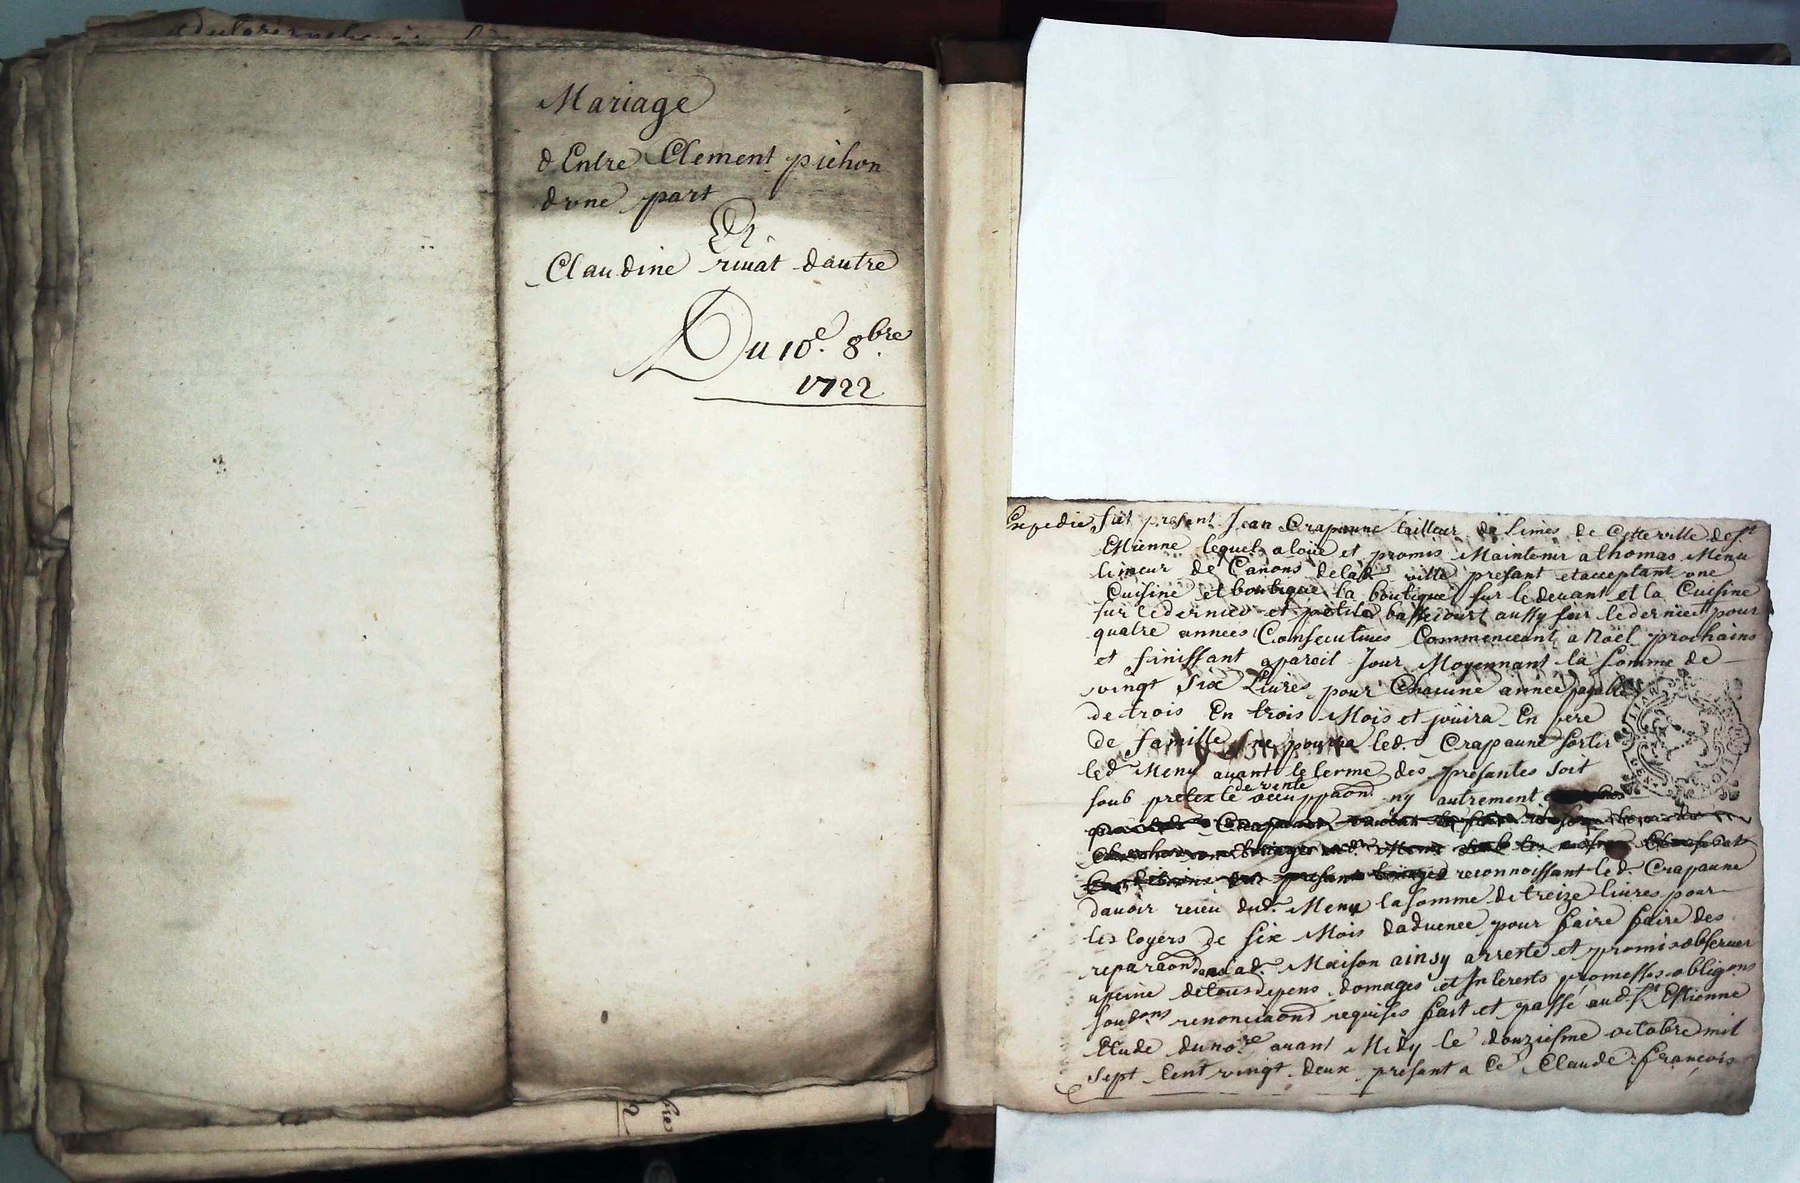 Mariage
d Entre Clement pichon
dune part
Et
Claudine riuat dautre
Du 10e. 8bre
1722
Expedie
fut present Jean Crapanne tailleur de limes de Cette ville de St
Estienne lequel a loüé et promis Maintenir a thomas Menu
limeur de Canons delad. ville present et acceptant une
Cuisine et boutique la boutique sur le deuant et la Cuisine
sur le dernier et petite bassecourt aussy sur le dernier pour
quatre années Consecutiues Commenceant a Noël prochains
et finissant a pareil Jour Moyennant la somme de
vingt six Liures pour Chacune année payable
de trois En trois Mois et joüira En pere
de famille ne pourra led. Crapanne sortir
led. Menu auant le terme des présantes soit
soub pretexte de vente occuppaon ny autrement
reconnoissant led. Crapanne
dauoir receu dud. Menu la somme de treize liures pour
les loyers de six Mois daduence pour faire faire des
reparaons a lad. Maison ainsy arresté et promis obseruer
a peine de tous depens domages et Interests promesses obligons
soubmons renonciaons requises fait et passé aud. St Estienne
Etude du nore auant Midy le douziesme octobre mil
sept Cent vingt deux present a Ce Claude françois